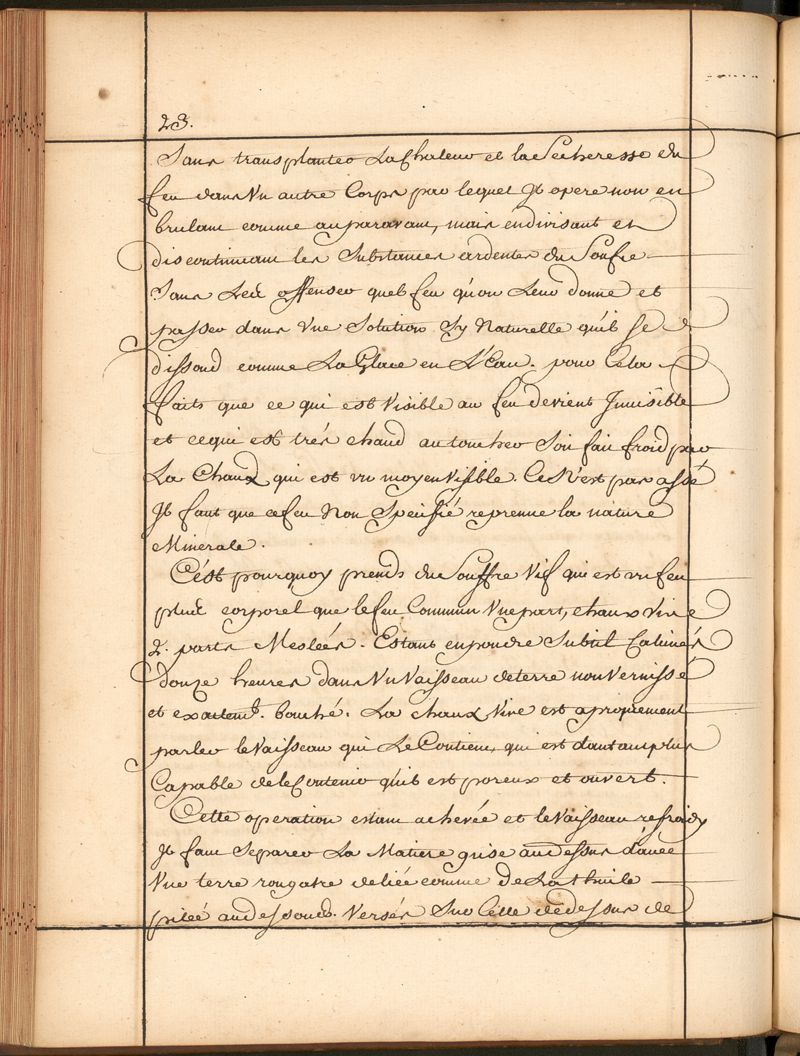 23.
Sans transplanter La Chaleur et la Secheresse du
feu dans Un autre Corps par lequel Jl opere non en
brulant comme auparavant, mais en divisant et
discontinuant les Substances ardentes du Soufre
Sans Les offenser quel feu qu'on Leur donne et
passer dans Une Solution Sy Naturelle qu'il se
dissoud comme La Glace en L'Eau. pour Cela
faits que ce qui est Visible au feu devient Jnvisible
et ce qui est trés chaud au toucher Soit fait froid par
La Chaux qui est un moyen Visible. Ce N'est pas assé
Jl faut que ce feu Non Specifié reprenne la nature
Minerale.
C'est pourquoy prends du Souffre Vif qui est un feu
plus corporel que le feu Commun Une part, chaux Vive
2. parts Meslées. Estant en poudre Subtil Calcinés
douze heures dans Un Vaisseau de terre non Vernissé
et exactemt. bouché. La chaux Vive est aproprement
parler le Vaisseau qui Le Contient, qui est dautant plus
Capable de le Contenir qu'il est poreux et ouvert.
Cette operation estant achevée et le Vaisseau refroidy
Jl faut Separer La Matiere grise au dessus d'avec
Une terre rougatre deliée comme De La thuile
pilée au dessous. Versés Sur Cette de dessus de